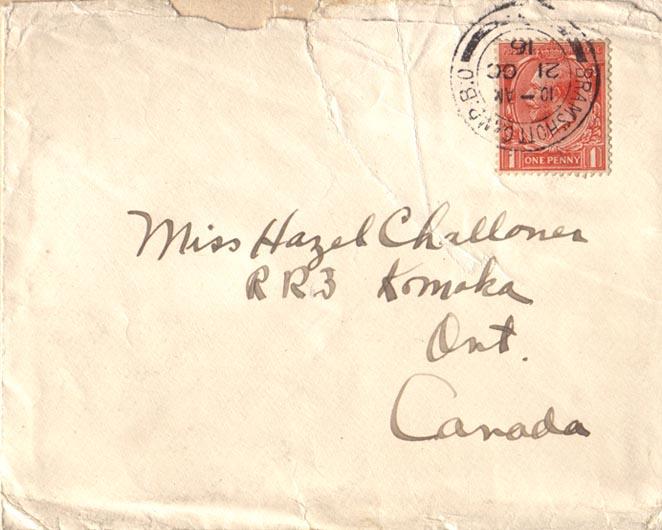 BRAMSHOTT CAMP. B.O
10 - AM
21 OC
16
1 ONE PENNY 1
Miss Hazel Challoner
RR3 Komoka
Ont.
Canada